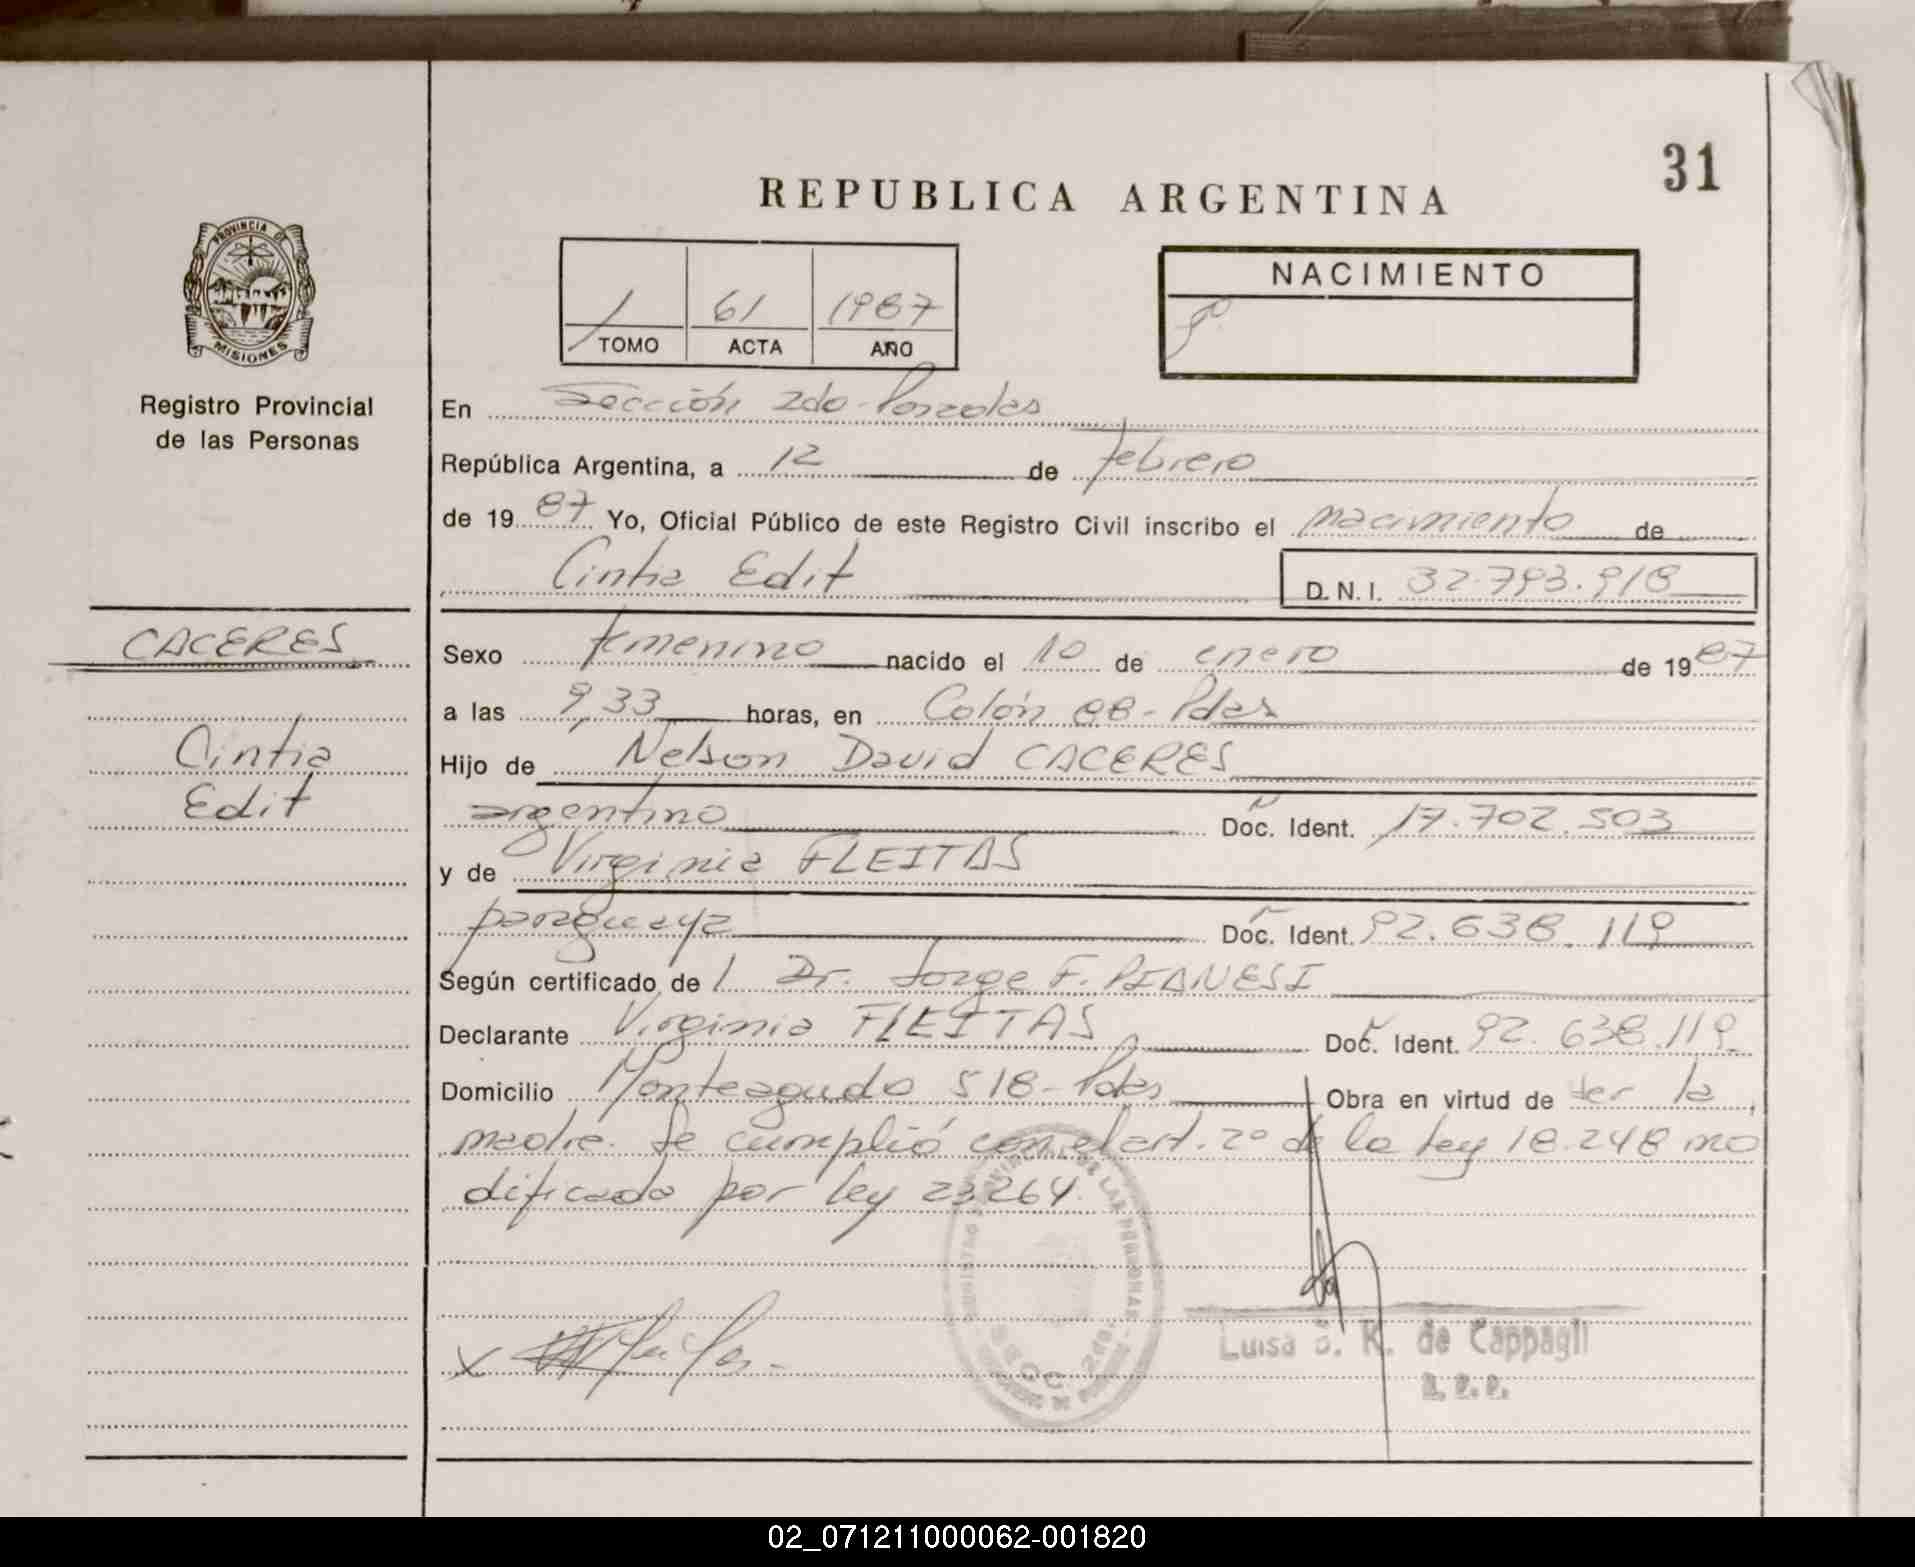 31
REPUBLICA ARGENTINA
PROVINCIA DE
MISIONES
Registro Provincial
de las Personas
1 61 1987
TOMO ACTA AÑO
NACIMIENTO
En Sección 2do-Posadas
República Argentina, a 12 de febrero
de 1987 Yo, Oficial Público de este Registro Civil inscribo el nacimiento de
Cintia Edit D.N.I. 32.793.918
CACERES
Cintia
Edit
Sexo femenino nacido el 10 de enero de 1987
a las 9,33 horas, en Colón 88-Pdas
Hijo de Nelson David CACERES
argentino Doc. Ident. 17.702.503
y de Virginia FLEITAS
paraguaya Doc. Ident. 92.638.119
Según certificado de l Dr. Jorge F. PIANESI
Declarante Virginia FLEITAS Doc. Ident. 92.638.119
Domicilio Monteagudo 518-Pdas Obra en virtud de ser la
madre. Se cumplió con el art. 2º de la ley 18.248 mo
dificada por ley 23264.
X
SECC. 2da.
Luisa K. de Cappagli
02_071211000062-001820